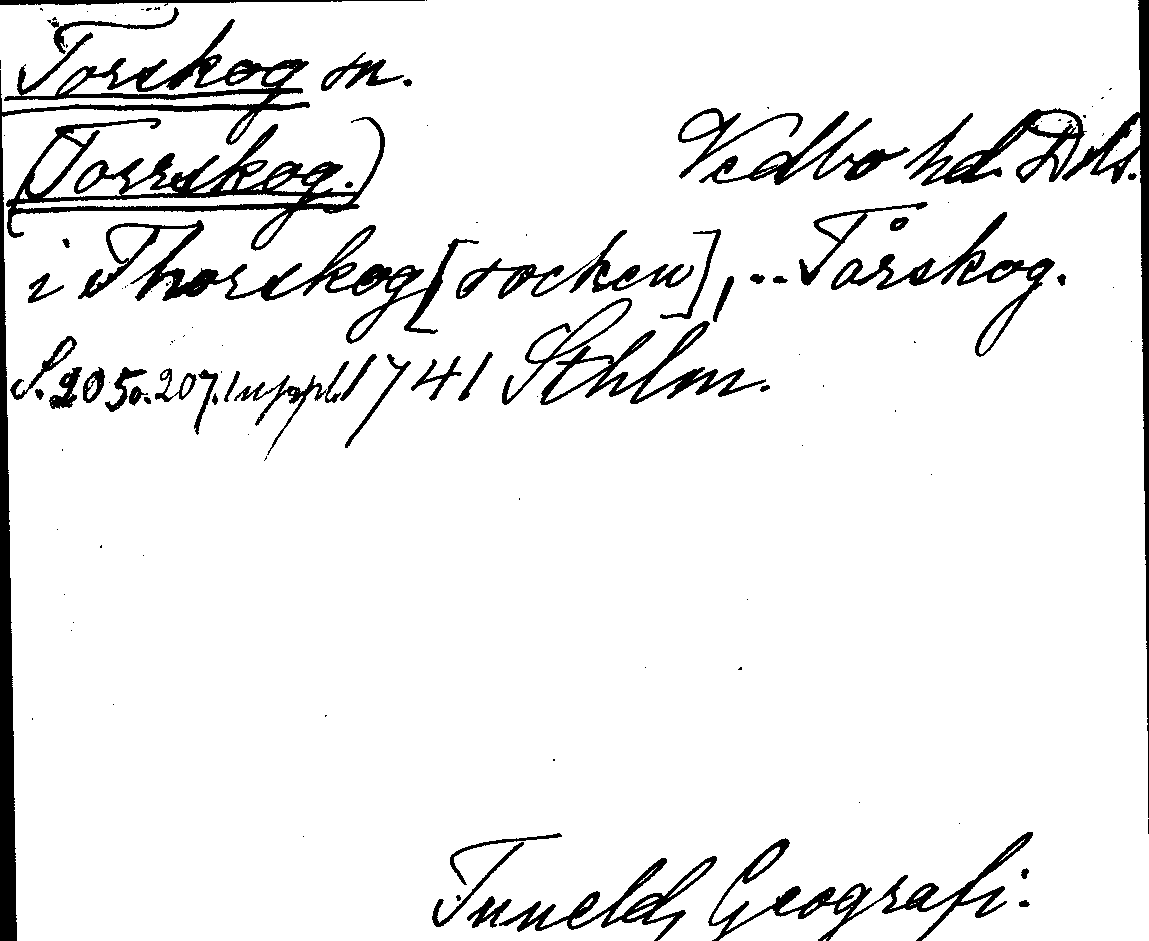 Torskog sn.
(Torrskog.)
Vedbo hd. Dls.
i Thorskog [socken], .. Tårskog.
S. 205 o. 207. 1 uppl. 1741 Sthlm.
Tuneld, Geografi.